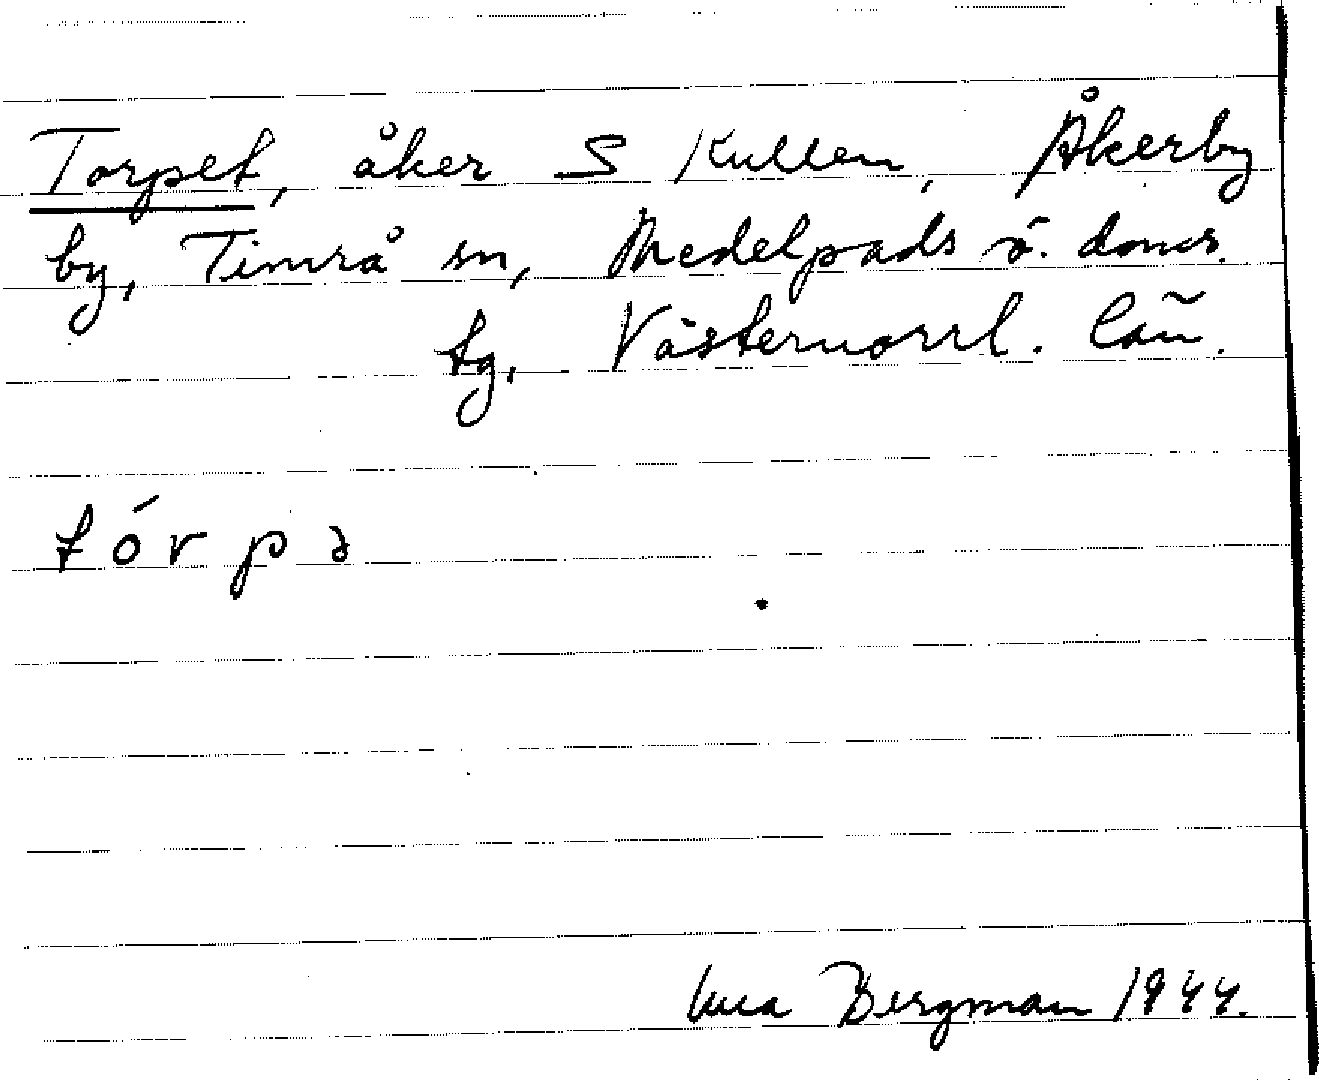 Torpet, åker S Kullen, Åkerby
by, Timrå sn, Medelpads ö. doms.
tg, Västernorrl. län.
tórpə
Una Bergman 1944.